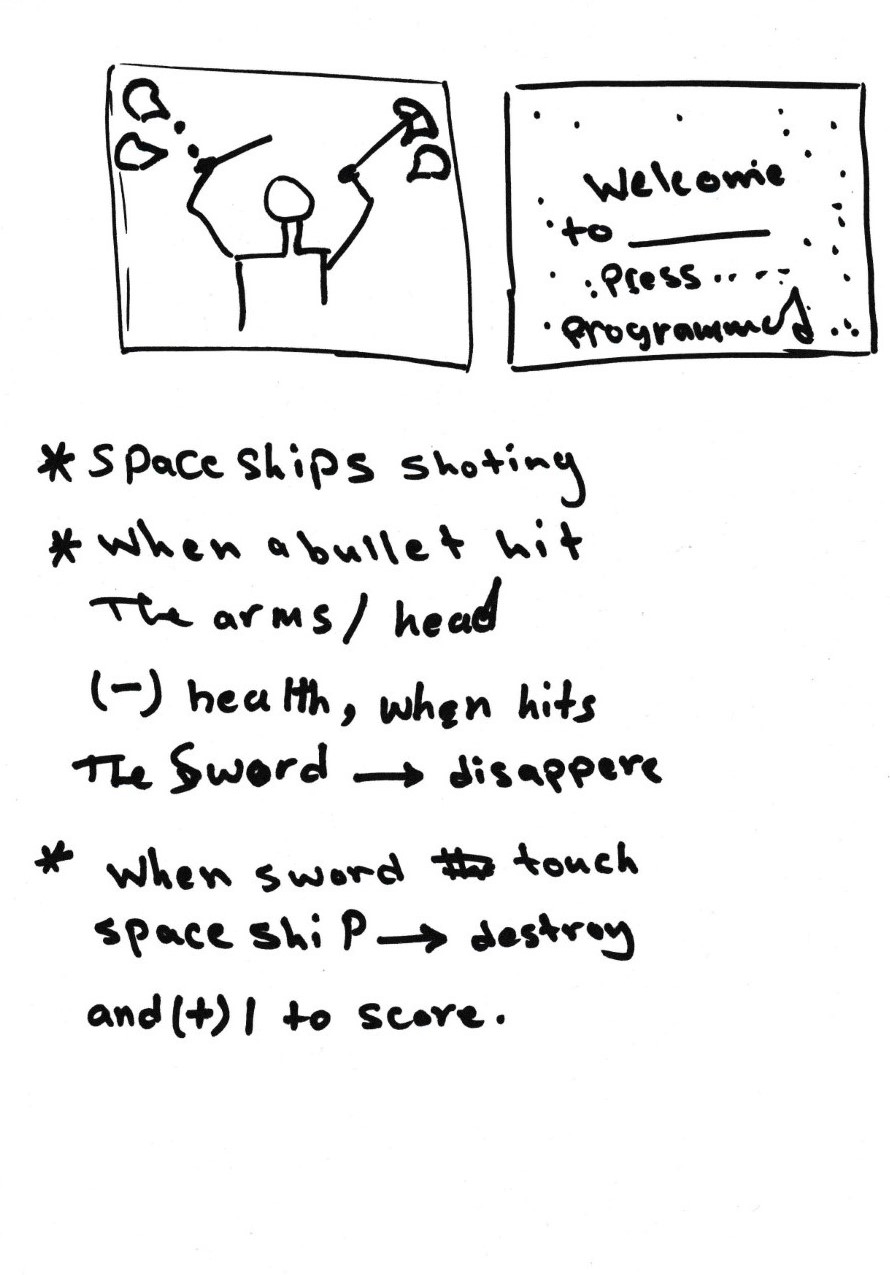 Welcome
to ________
:Press.. ....
Programmed ...
* Space ships shoting
* when a bullet hit
The arms / head
(-) health, when hits
The Sword → disappere
* when sword touch
space ship → destroy
and (+) 1 to score.